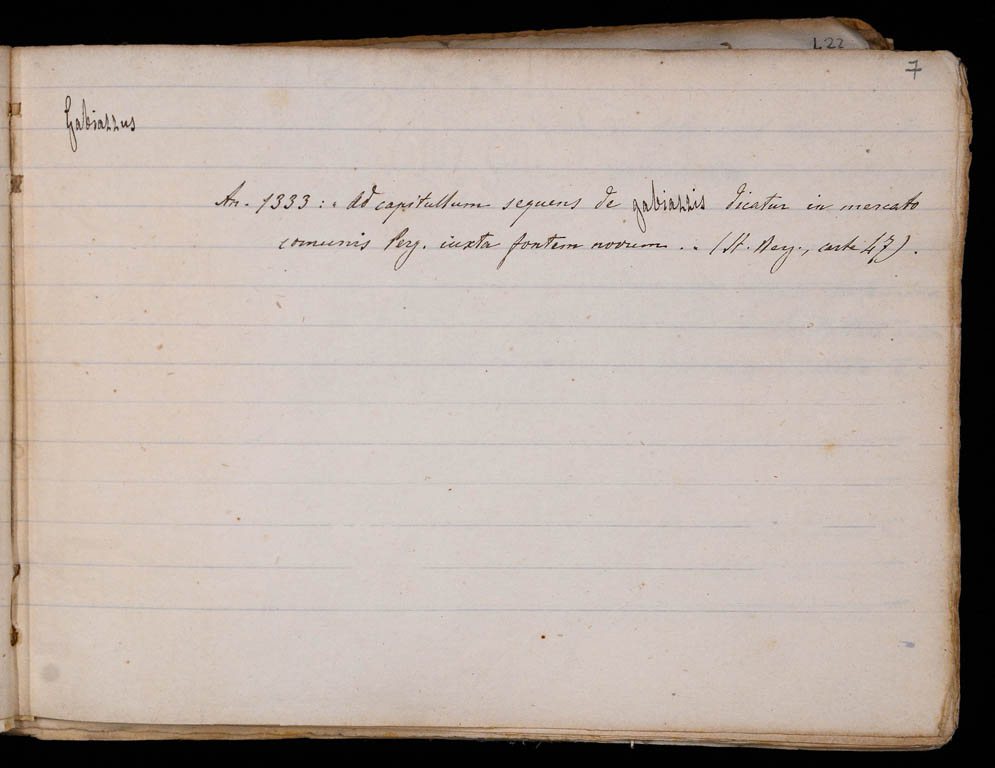 422
7
Gabiazzus
An. 1333: " Ad capitullum sequens de gabiazzis dicatur in mercato
comunis Perg. iuxta fontem novum. " (St. Berg., carta 47).